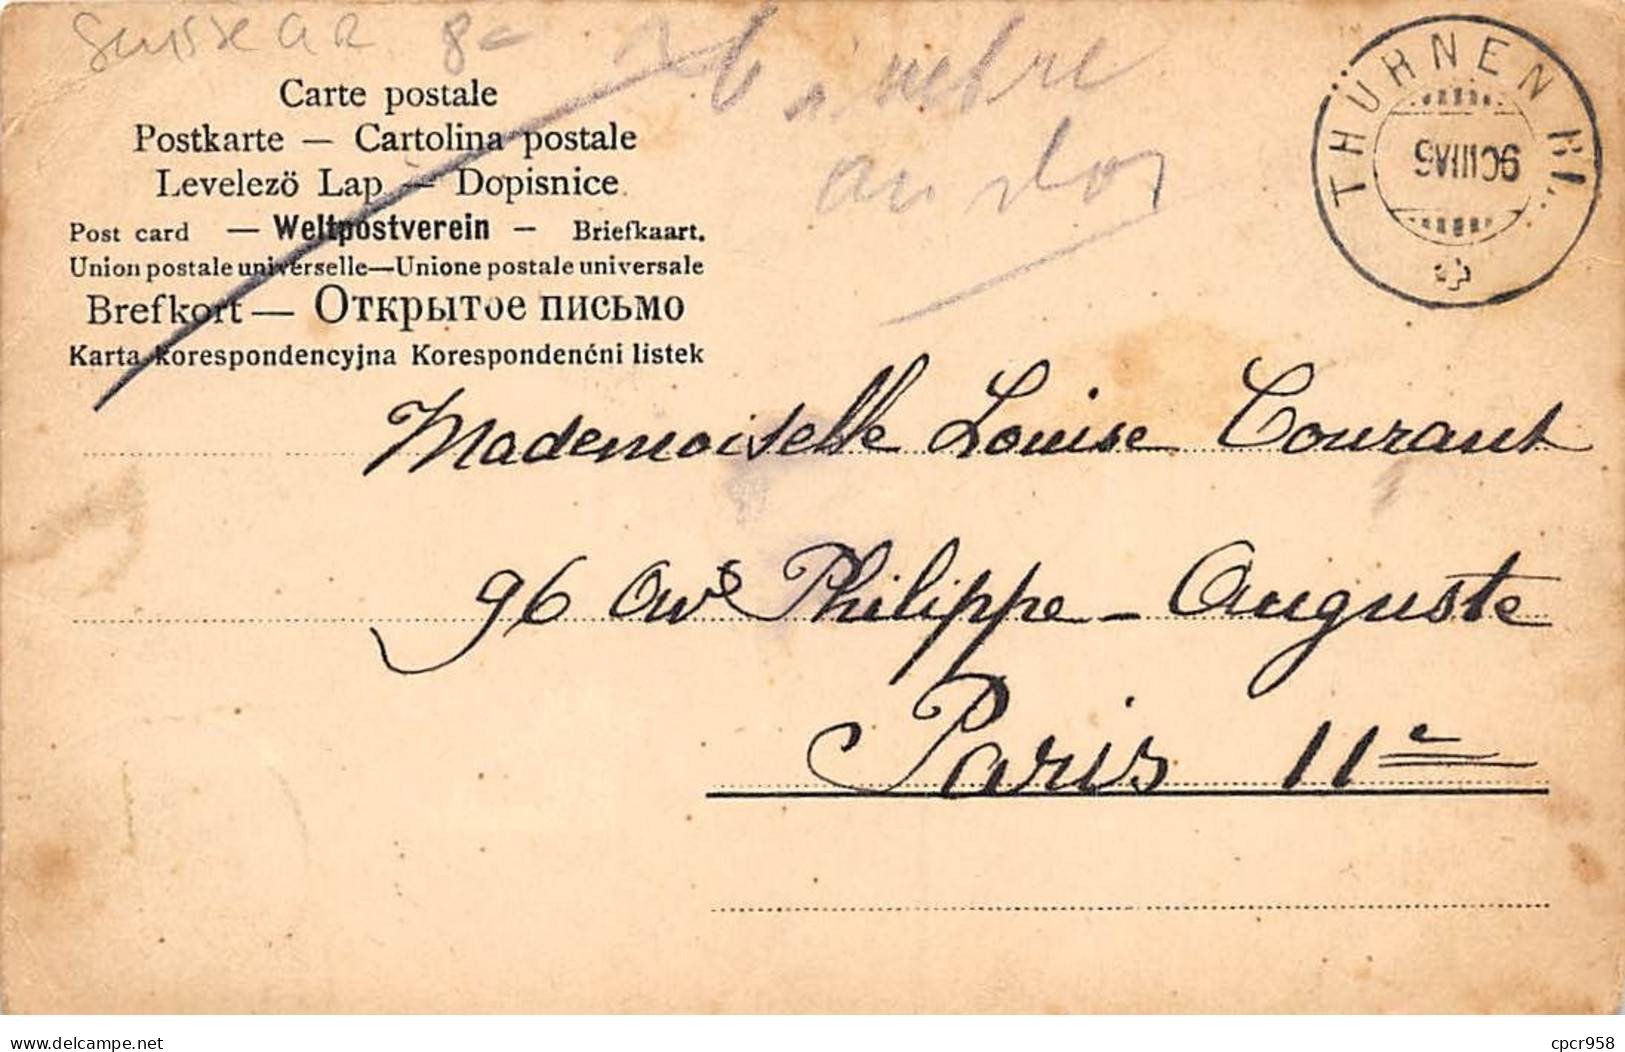 Suisse AR 80
Timbre
au dos
Carte postale
Postkarte — Cartolina postale
Levelezö Lap — Dopisnice
Post card — Weltpostverein — Briefkaart.
Union postale universelle—Unione postale universale
Brefkort — Открытое письмо
Karta korespondencyjna Korespondenćni listek
THÜRNEN
Mademoiselle Louise Courant
96 Ave Philippe-Auguste
Paris 11e
delcampe.net
cpcr958